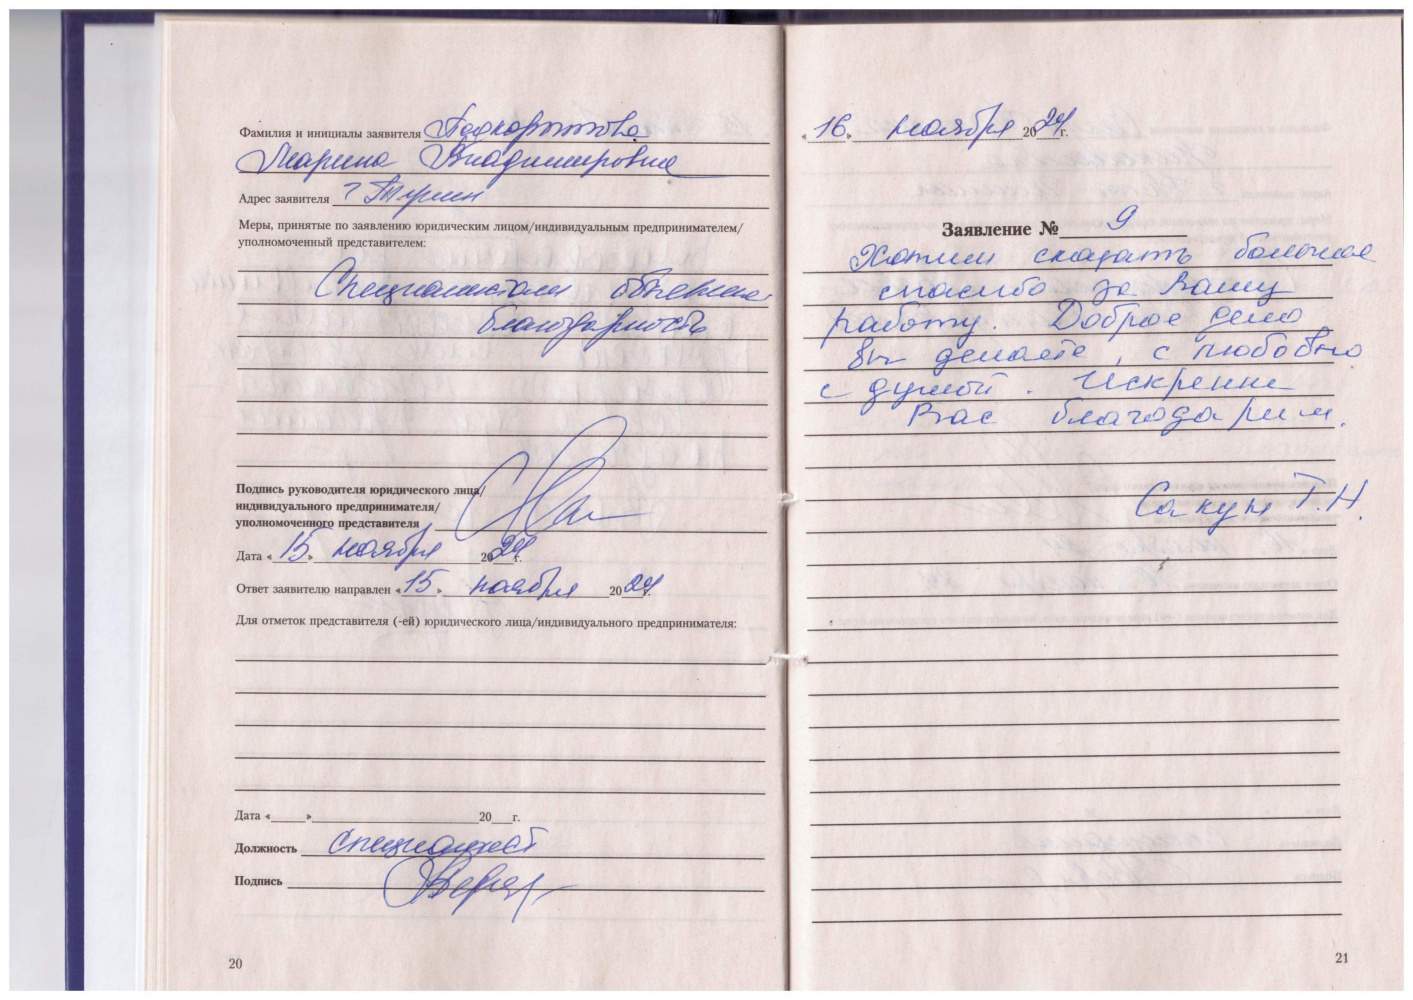 Фамилия и инициалы заявителя Подкорытова
Марина Владимировна
Адрес заявителя г
Меры, принятые по заявлению юридическим лицом/индивидуальным предпринимателем/
уполномоченный представителем:
Специалистам объявлена
благодарность
Подпись руководителя юридического лица/
индивидуального предпринимателя/
уполномоченного представителя
Дата «15» ноября 2024г.
Ответ заявителю направлен «15» ноября 2024г.
Для отметок представителя (-ей) юридического лица/индивидуального предпринимателя:
Дата «___»___20__г.
Должность специалист
Подпись
20
«16» ноября 2024г.
Заявление № 9
Хотим сказать большое
спасибо за Вашу
работу. Доброе дело
вы делаете, с любовью
с душой. Искренне
Вас благодарим.
Т.Н.
21